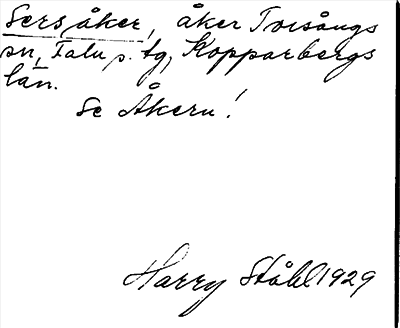 Sers åker, åker Torsångs
sn, Falu s. tg, Kopparbergs
län.
Se Åkern!
Harry Ståhl 1929